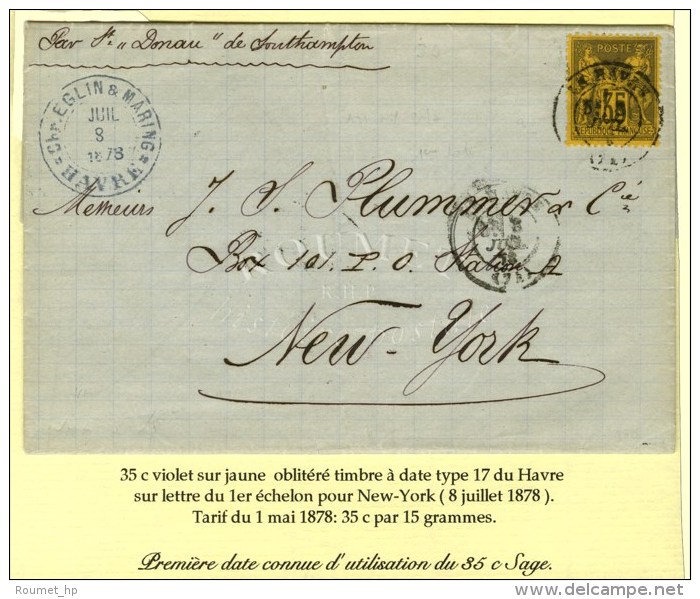 Par St. „Donau" de Southampton
Chs. EGLIN & MARING
JUIL
8
1878
HAVRE
POSTE
35
REPUBLIQUE FRANÇAISE
Messieurs J. S. Plummer & Cie
Box 101. P. O. Station A
New-York
ROUMET
35 c violet sur jaune oblitéré timbre à date type 17 du Havre
sur lettre du 1er échelon pour New-York ( 8 juillet 1878 ).
Tarif du 1 mai 1878: 35 c par 15 grammes.
Première date connue d'utilisation du 35 c Sage.
Roumet_hp
delcampe.net